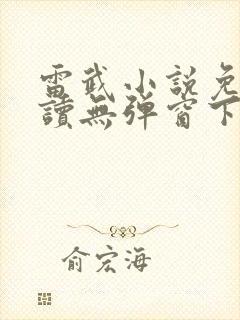 雷武小說免
讀無彈窗下
俞宏海